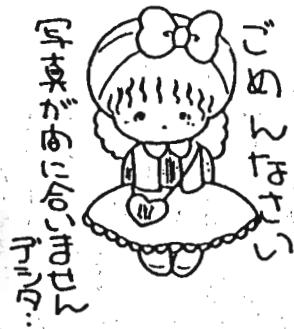 ごめんなさい
写真が間に合いません
デシタ…